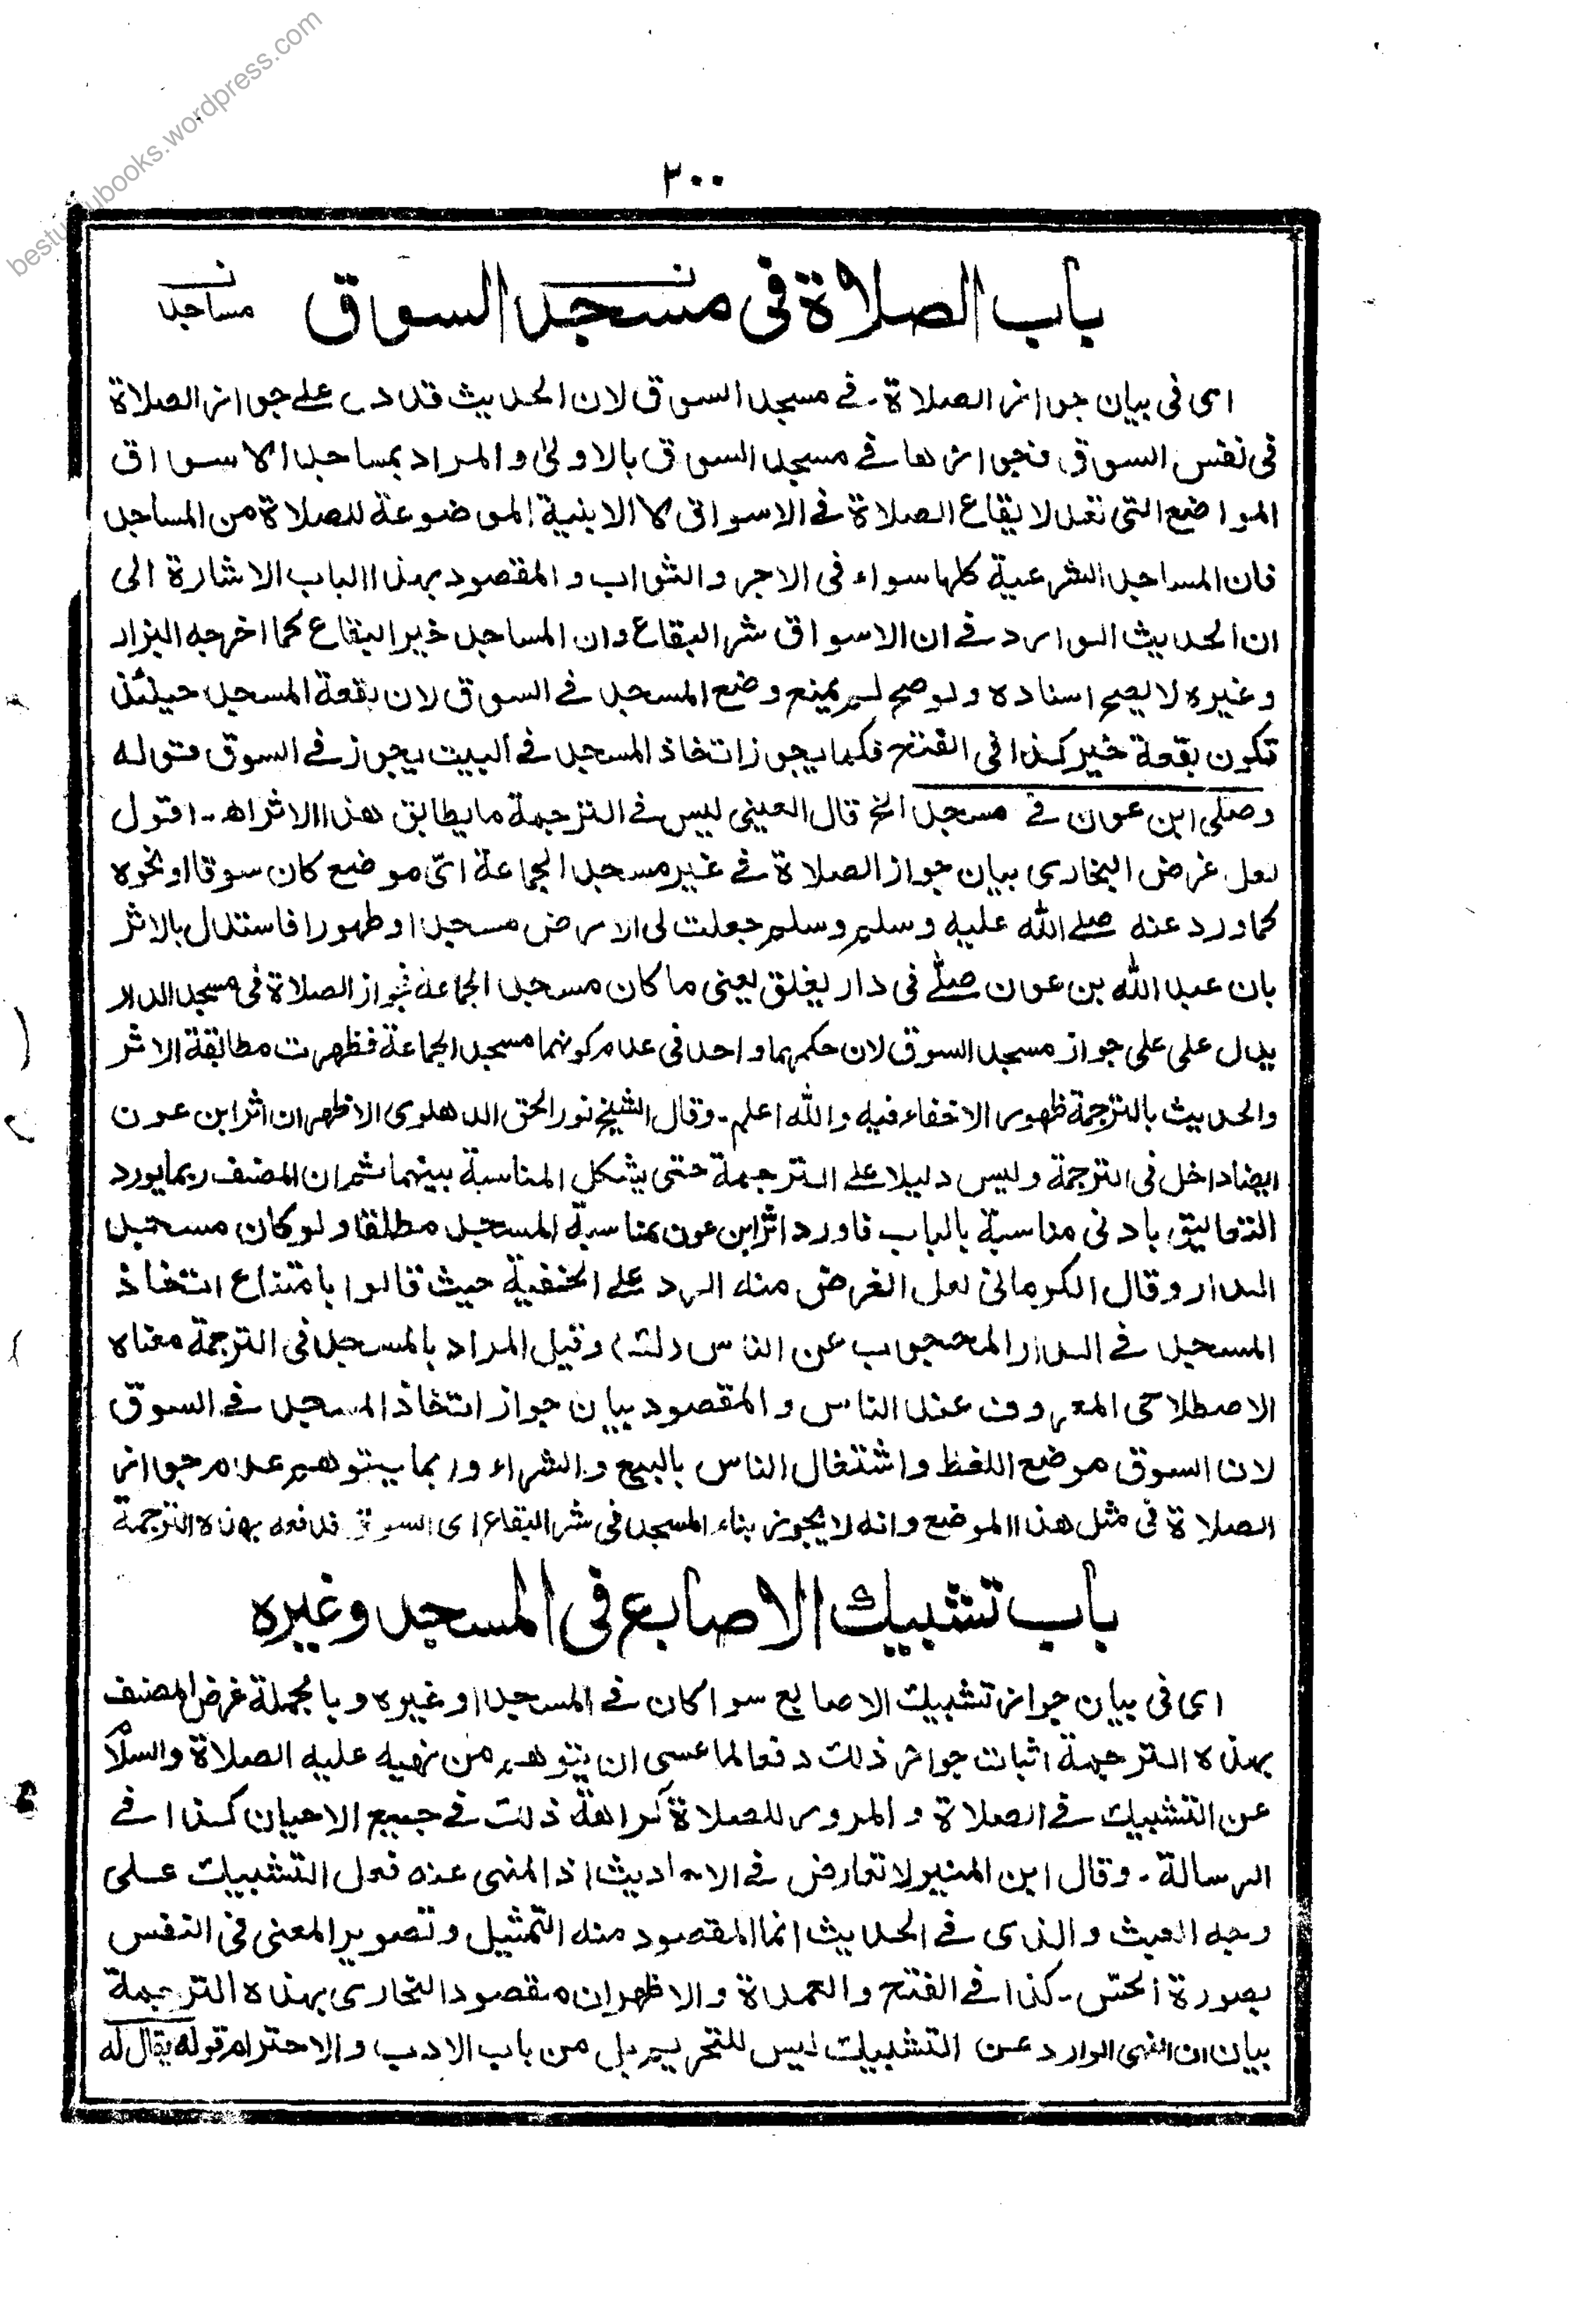 besturdubooks.wordpress.com
٣٠٠
باب الصلاة فى مسجد السواق
ن
مساجد
اى فى بيان جواز الصلاة فى مسجد السوق لان الحديث قد دل على جواز الصلاة
فى نفس السوق فجوازها فى مسجد السوق بالاولىٰ والمراد بمساجد الاسواق
المواضع التى تعد لايقاع الصلاة فى الاسواق لا الابنية الموضوعة للصلاة من المساجد
فان المساجد الشرعية كلها سواء فى الاجر والثواب والمقصود بهذا الباب الاشارة الى
ان الحديث الوارد فى ان الاسواق شر البقاع وان المساجد خير البقاع كما اخرجه البزار
وغيره لا يصح اسناده ولو صح لم يمنع وضع المسجد فى السوق لان بقعة المسجد حينئذ
تكون بقعة خير كذا فى الفتح فكما يجوز اتخاذ المسجد فى البيت يجوز فى السوق قوله
وصلى ابن عون فى مسجد الخ قال العينى ليس فى الترجمة ما يطابق هذا الاثر اهـ - اقول
لعل غرض البخارى بيان جواز الصلاة فى غير مسجد الجماعة اىّ موضع كان سوقا او نحوه
كما ورد عنه صلى الله عليه وسلم وسلم جعلت لى الارض مسجدا وطهورا فاستدل بالاثر
بان عبد الله بن عون صلّى فى دار يغلق يعنى ما كان مسجد الجماعة فجواز الصلاة فى مسجد الدار
يدل على على جواز مسجد السوق لان حكمهما واحد فى عدم كونهما مسجد الجماعة فظهرت مطابقة الاثر
والحديث بالترجمة ظهورا لاخفاء فيه والله اعلم - وقال الشيخ نور الحق الدهلوى الاظهر ان اثر ابن عون
ايضا داخل فى الترجمة وليس دليلا على الترجمة حتى يشكل المناسبة بينهما ثم ان المصنف ربما يورد
التعاليق بادنى مناسبة بالباب فاورد اثر ابن عون بمناسبة المسجد مطلقا ولو كان مسجد
الدار وقال الكرمانى لعل الغرض منه الرد على الحنفية حيث قالوا بامتناع اتخاذ
المسجد فى الدار المحجوب عن الناس وقيل المراد بالمسجد فى الترجمة معناه
الاصطلاحى المعروف عند الناس والمقصود بيان جواز اتخاذ المسجد فى السوق
لان السوق موضع اللغط واشتغال الناس بالبيع والشراء وربما يتوهم عدم جواز
الصلاة فى مثل هذا الموضع وانه لا يجوز بناء المسجد فى شر البقاع اى السوق فدفعه بهذه الترجمة
باب تشبيك الاصابع فى المسجد وغيره
اى فى بيان جواز تشبيك الاصابع سواكان فى المسجد او غيره وبالجملة غرض المصنف
بهذه الترجمة اثبات جواز ذلك دفعا لما عسى ان يتوهم من نهيه عليه الصلاة والسلام
عن التشبيك فى الصلاة والمرور للصلاة كراهة ذلك فى جميع الاحيان كذا فى
الرسالة - وقال ابن المنير لا تعارض فى الاحاديث اذ المنهى عنه فعل التشبيك على
وجه العبث والذى فى الحديث انما المقصود منه التمثيل وتصوير المعنى فى النفس
بصورة الحسّ - كذا فى الفتح والعمدة والاظهر ان مقصود البخارى بهذه الترجمة
بيان ان النهى الوارد عن التشبيك ليس للتحريم بل من باب الادب والاحترام قوله يقال له